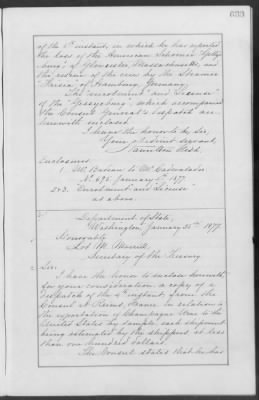 633
of the 6th instant, in which he has reported
the loss of the American Schooner "Gettys-
burg" of Gloucester, Massachusetts, and
the rescue of the crew by the Steamer
of Hamburg, Germany.
The "enrolment" and License
of the "Gettysburg", which accompanied
the Consul General's dispatch are
herewith enclosed.
I have the honor to be, Sir,
Your obedient servant,
Hamilton Fish.
Enclosures.
1. Mr. Badeau to Mr. Cadwalader
No. 695. January 6th 1877.
2 & 3. "Enrolment" and "License"
as above.
Department of State,
Washington, January 25th 1877.
Honorable
Lot M. Morrill,
Secretary of the Treasury.
Sir:
I have the honor to enclose herewith
for your consideration, a copy of a
dispatch of the 4th instant, from the
Consul at Reims, France, in relation to
the exportation of Champagne Wine to the
United States by sample, each shipment
being estimated by the shippers at less
than one hundred dollars.
The Consul states that he has